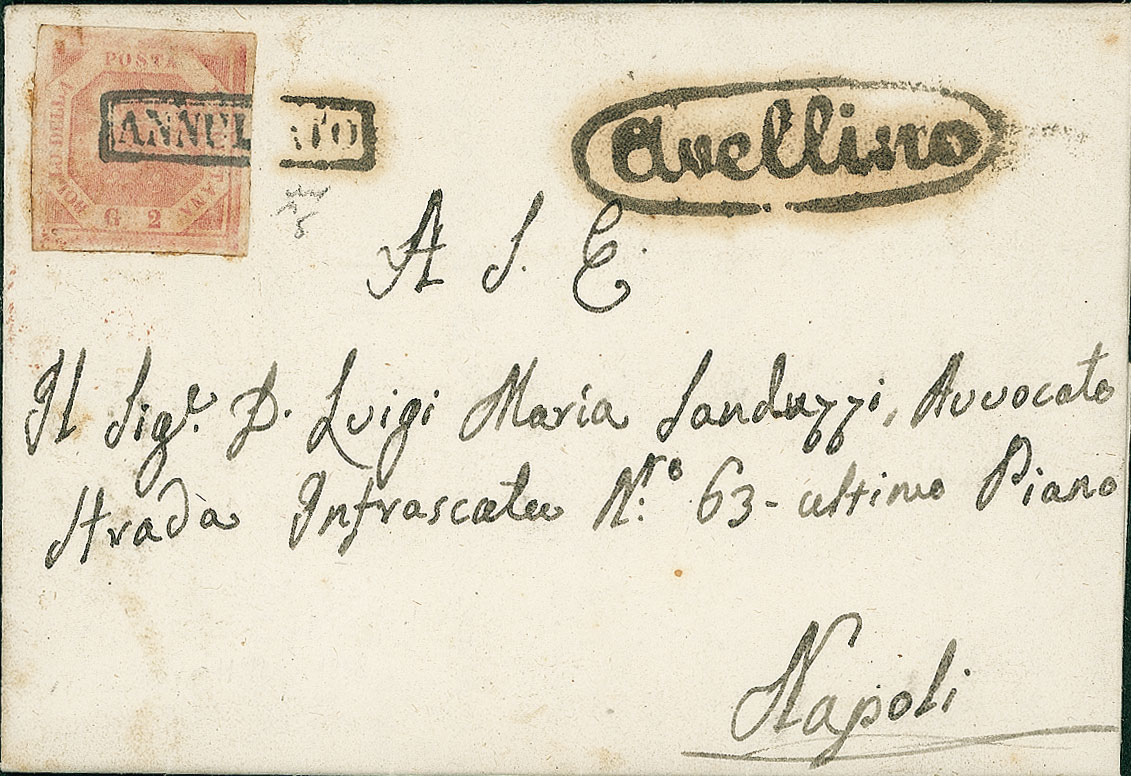 POSTA
BOLLO DELLA
NAPOLETANA
G 2
ANNULATO
Avellino
A S. E.
Il Sig.r D. Luigi Maria Sanduzzi, Avvocato
Strada Infrascata N.ro 63 - ultimo Piano
Napoli